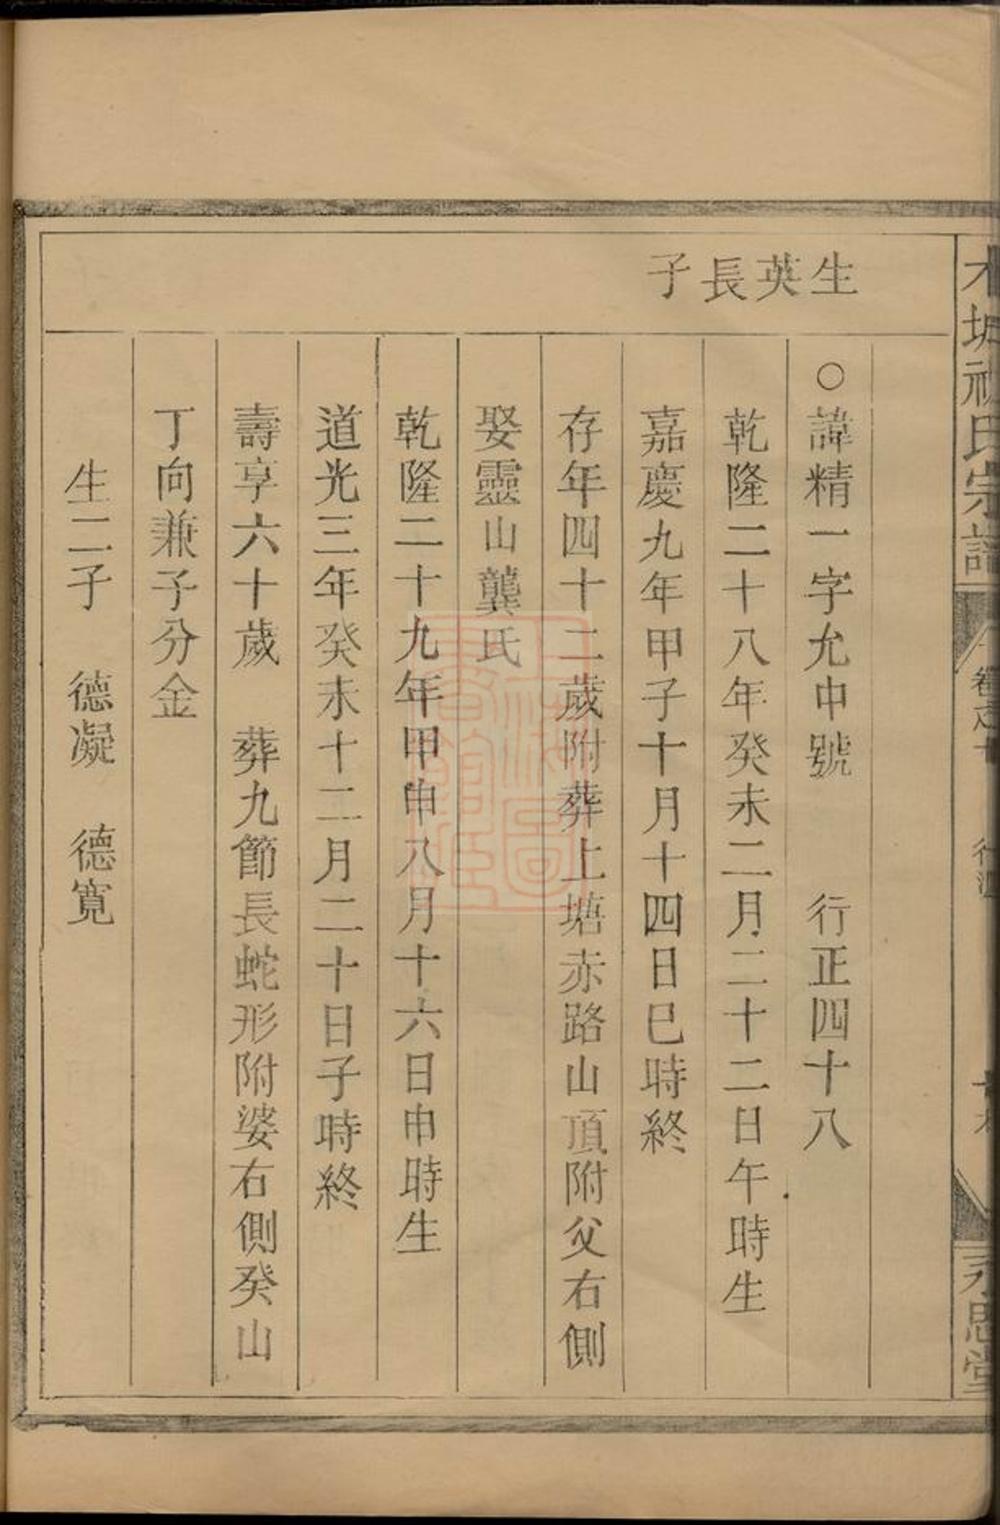 城祝氏宗譜
卷之十
永思堂
生英長子
○諱精一字允中號 行正四十八
乾隆二十八年癸未二月二十二日午時生
嘉慶九年甲子十月十四日巳時終
存年四十二歲附葬上塘赤路山頂附父右側
娶靈山龔氏
乾隆二十九年甲申八月十六日申時生
道光三年癸未十二月二十日子時終
壽享六十歲 葬九節長蛇形附婆右側癸山
丁向兼子分金
生二子 德凝 德寬